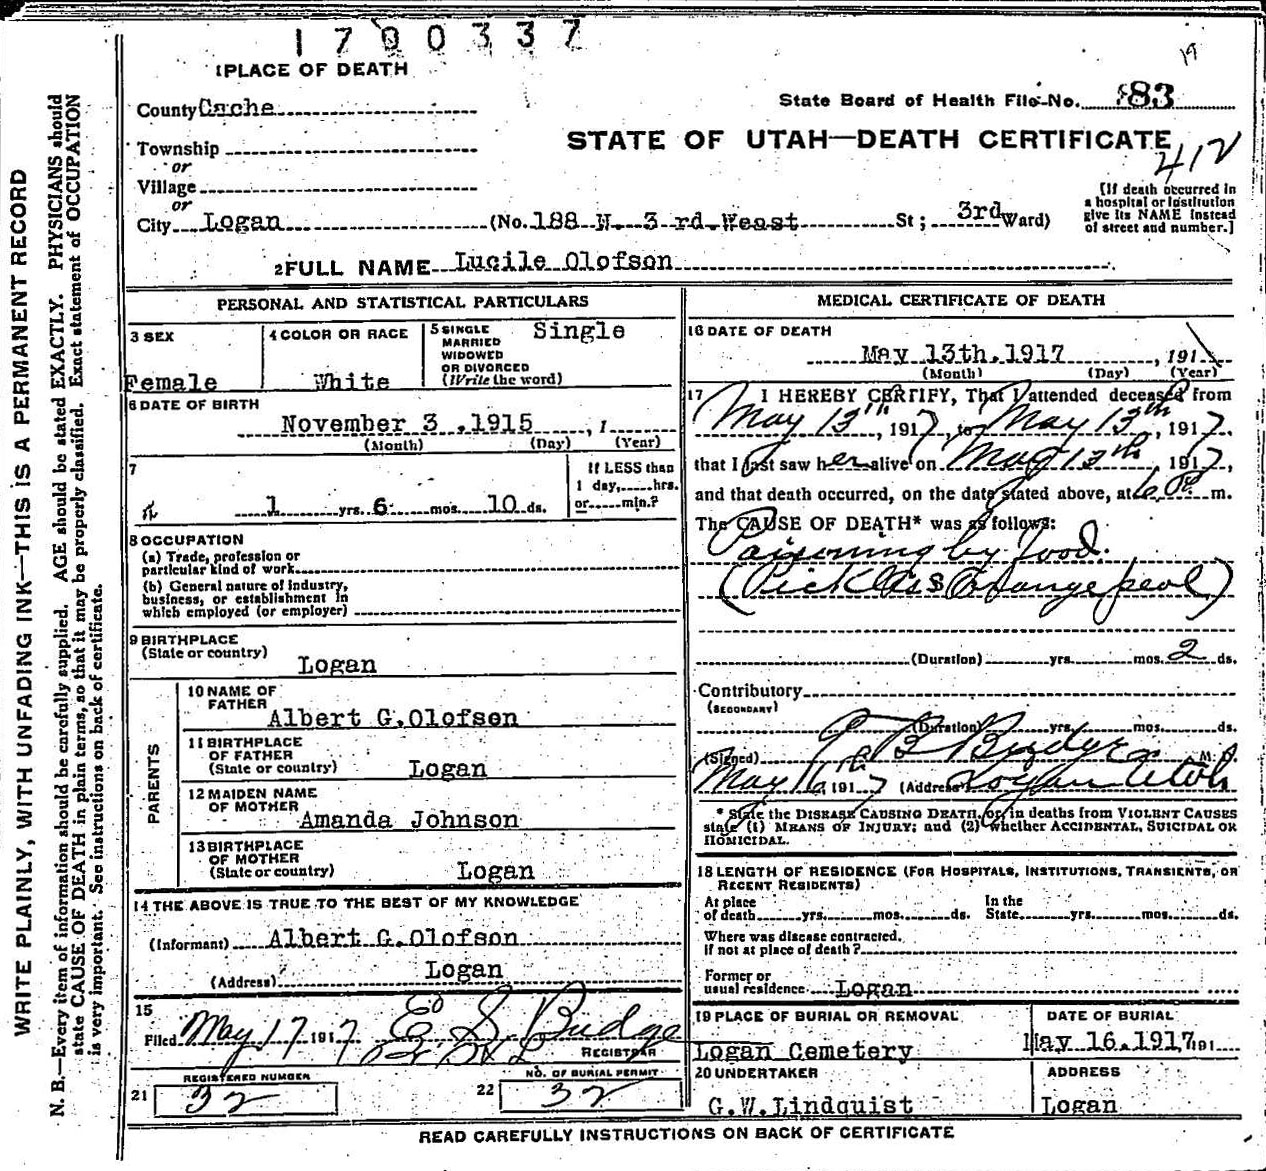 1700337
19
1 PLACE OF DEATH
County Cache
State Board of Health File No. 83
STATE OF UTAH—DEATH CERTIFICATE
412
Township
or
Village
or
City Logan (No. 188 N. 3 rd. Weast St; 3rd Ward)
[If death occurred in a hospital or institution give its NAME instead of street and number.]
2 FULL NAME Lucile Olofson
PERSONAL AND STATISTICAL PARTICULARS
3 SEX
Female
4 COLOR OR RACE
White
5 SINGLE
MARRIED
WIDOWED
OR DIVORCED
(Write the word)
Single
6 DATE OF BIRTH
November 3 .1915 , 1
(Month) (Day) (Year)
7
1 yrs. 6 mos. 10 ds.
If LESS than
1 day, hrs.
or min.?
8 OCCUPATION
(a) Trade, profession or
particular kind of work
(b) General nature of industry,
business, or establishment in
which employed (or employer)
9 BIRTHPLACE
(State or country)
Logan
PARENTS
10 NAME OF
FATHER
Albert G.Olofson
11 BIRTHPLACE
OF FATHER
(State or country)
Logan
12 MAIDEN NAME
OF MOTHER
Amanda Johnson
13 BIRTHPLACE
OF MOTHER
(State or country)
Logan
14 THE ABOVE IS TRUE TO THE BEST OF MY KNOWLEDGE
(Informant) Albert G.Olofson
(Address) Logan
15
Filed May 17 1917 E S Budge
REGISTRAR
REGISTERED NUMBER
21 32
NO. OF BURIAL PERMIT
22 32
MEDICAL CERTIFICATE OF DEATH
16 DATE OF DEATH
May 13th.1917 , 191
(Month) (Day) (Year)
17 I HEREBY CERTIFY, That I attended deceased from
May 13th, 1917, to May 13th, 1917,
that I last saw her alive on May 13th, 1917,
and that death occurred, on the date stated above, at 6 P. m.
The CAUSE OF DEATH* was as follows:
Poisoning by food.
(Pickles & Orange peal)
(Duration) yrs. mos. 2 ds.
Contributory
(SECONDARY)
(Duration) yrs. mos. ds.
(Signed) Budge M. D.
May 16th, 1917 (Address) Logan Utah
* State the DISEASE CAUSING DEATH, or, in deaths from VIOLENT CAUSES
state (1) MEANS OF INJURY; and (2) whether ACCIDENTAL, SUICIDAL OR
HOMICIDAL.
18 LENGTH OF RESIDENCE (FOR HOSPITALS, INSTITUTIONS, TRANSIENTS, OR
RECENT RESIDENTS)
At place
of death yrs. mos. ds.
In the
State yrs. mos. ds.
Where was disease contracted,
if not at place of death?
Former or
usual residence Logan
19 PLACE OF BURIAL OR REMOVAL
Logan Cemetery
DATE OF BURIAL
May 16.1917, 191
20 UNDERTAKER
G.W.Lindquist
ADDRESS
Logan
READ CAREFULLY INSTRUCTIONS ON BACK OF CERTIFICATE
WRITE PLAINLY, WITH UNFADING INK—THIS IS A PERMANENT RECORD
N. B.—Every item of information should be carefully supplied. AGE should be stated EXACTLY. PHYSICIANS should
state CAUSE OF DEATH in plain terms, so that it may be properly classified. Exact statement of OCCUPATION
is very important. See instructions on back of certificate.